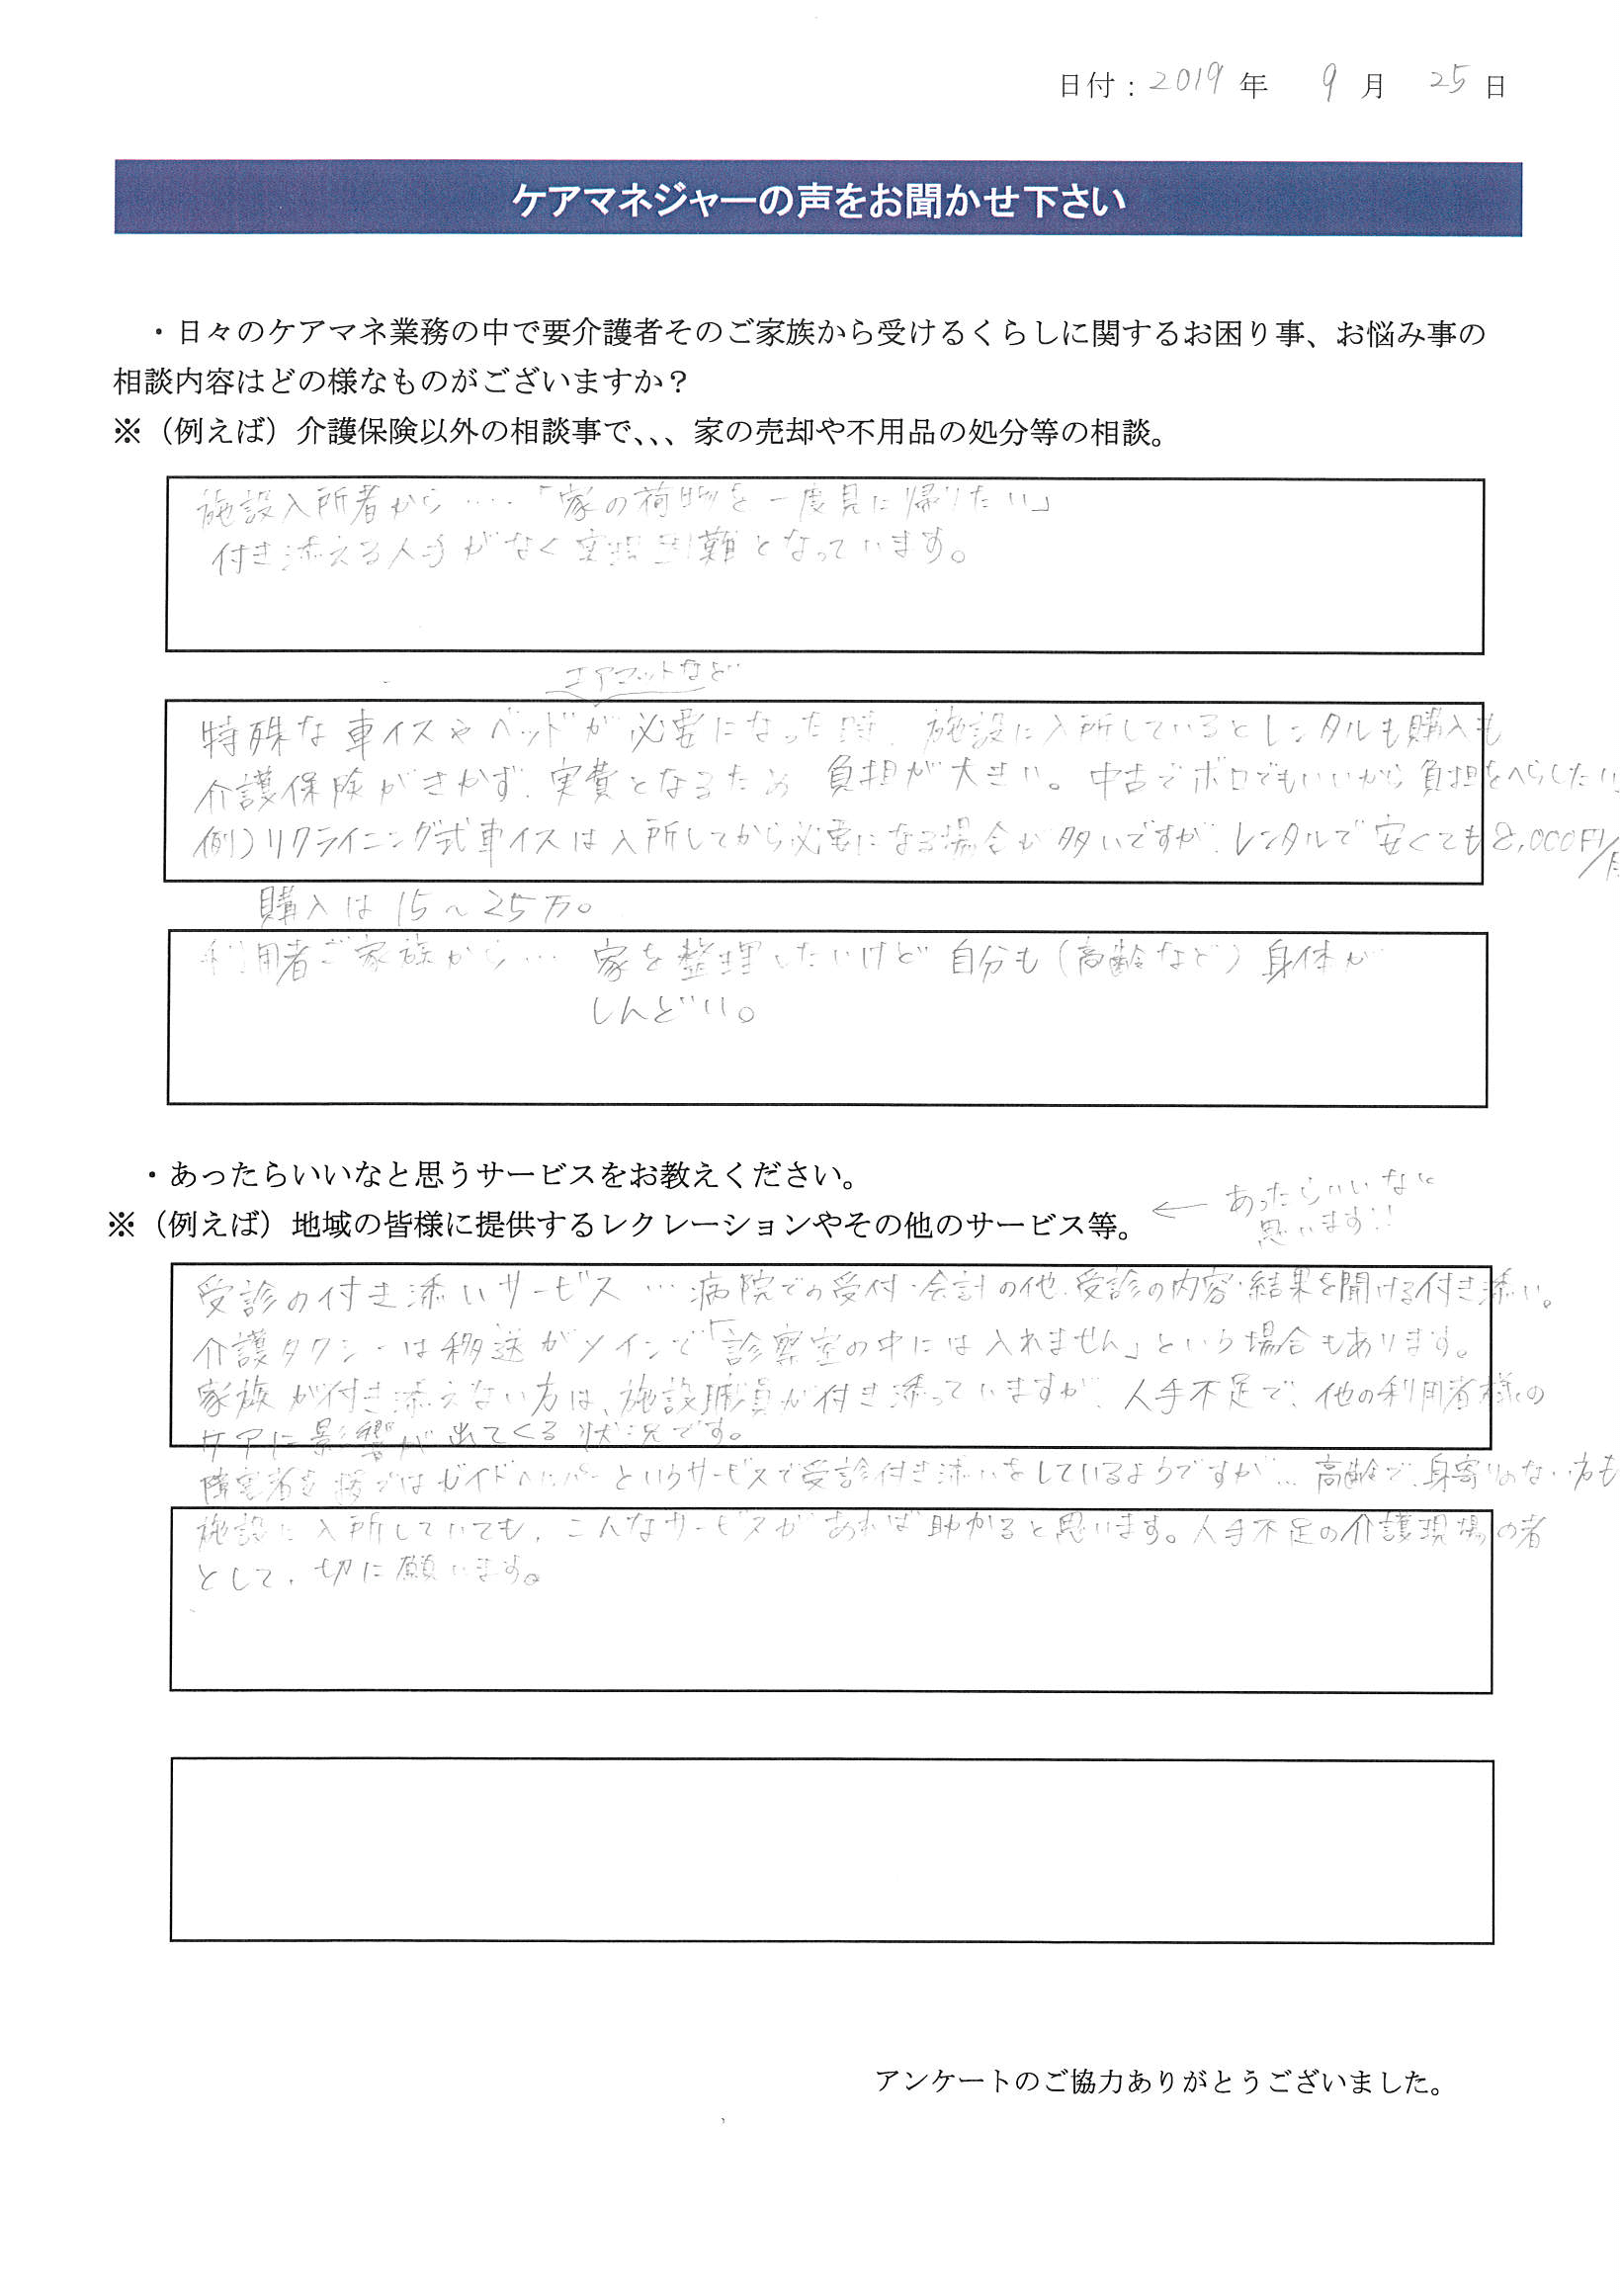 日付：2019年 9月 25日
ケアマネジャーの声をお聞かせ下さい
・日々のケアマネ業務の中で要介護者そのご家族から受けるくらしに関するお困り事、お悩み事の
相談内容はどの様なものがございますか？
※（例えば）介護保険以外の相談事で、、、家の売却や不用品の処分等の相談。
施設入所者から……「家の荷物を一度見に帰りたい」
付き添える人手がなく実現困難となっています。
エアマットなど
特殊な車イスやベッドが必要になった時、施設に入所しているとレンタルも購入も
介護保険がきかず、実費となるため 負担が大きい。中古でボロでもいいから負担をへらしたい。
例）リクライニング式車イスは入所してから必要になる場合が多いですが、レンタルで安くても8,000円/月
購入は15～25万。
利用者ご家族から… 家を整理したいけど 自分も（高齢など）身体が
しんどい。
・あったらいいなと思うサービスをお教えください。
※（例えば）地域の皆様に提供するレクレーションやその他のサービス等。
← あったらいいなと
思います!!
受診の付き添いサービス…病院での受付・会計の他、受診の内容・結果を聞ける付き添い。
介護タクシーは移送がメインで「診察室の中には入れません」という場合もあります。
家族が付き添えない方は、施設職員が付き添っていますが、人手不足で、他の利用者様の
ケアに影響が出てくる状況です。
障害者支援ではガイドヘルパーというサービスで受診付き添いをしているようですが… 高齢で、身寄りのない方も
施設に入所していても、こんなサービスがあれば助かると思います。人手不足の介護現場の者
として、切に願います。
アンケートのご協力ありがとうございました。